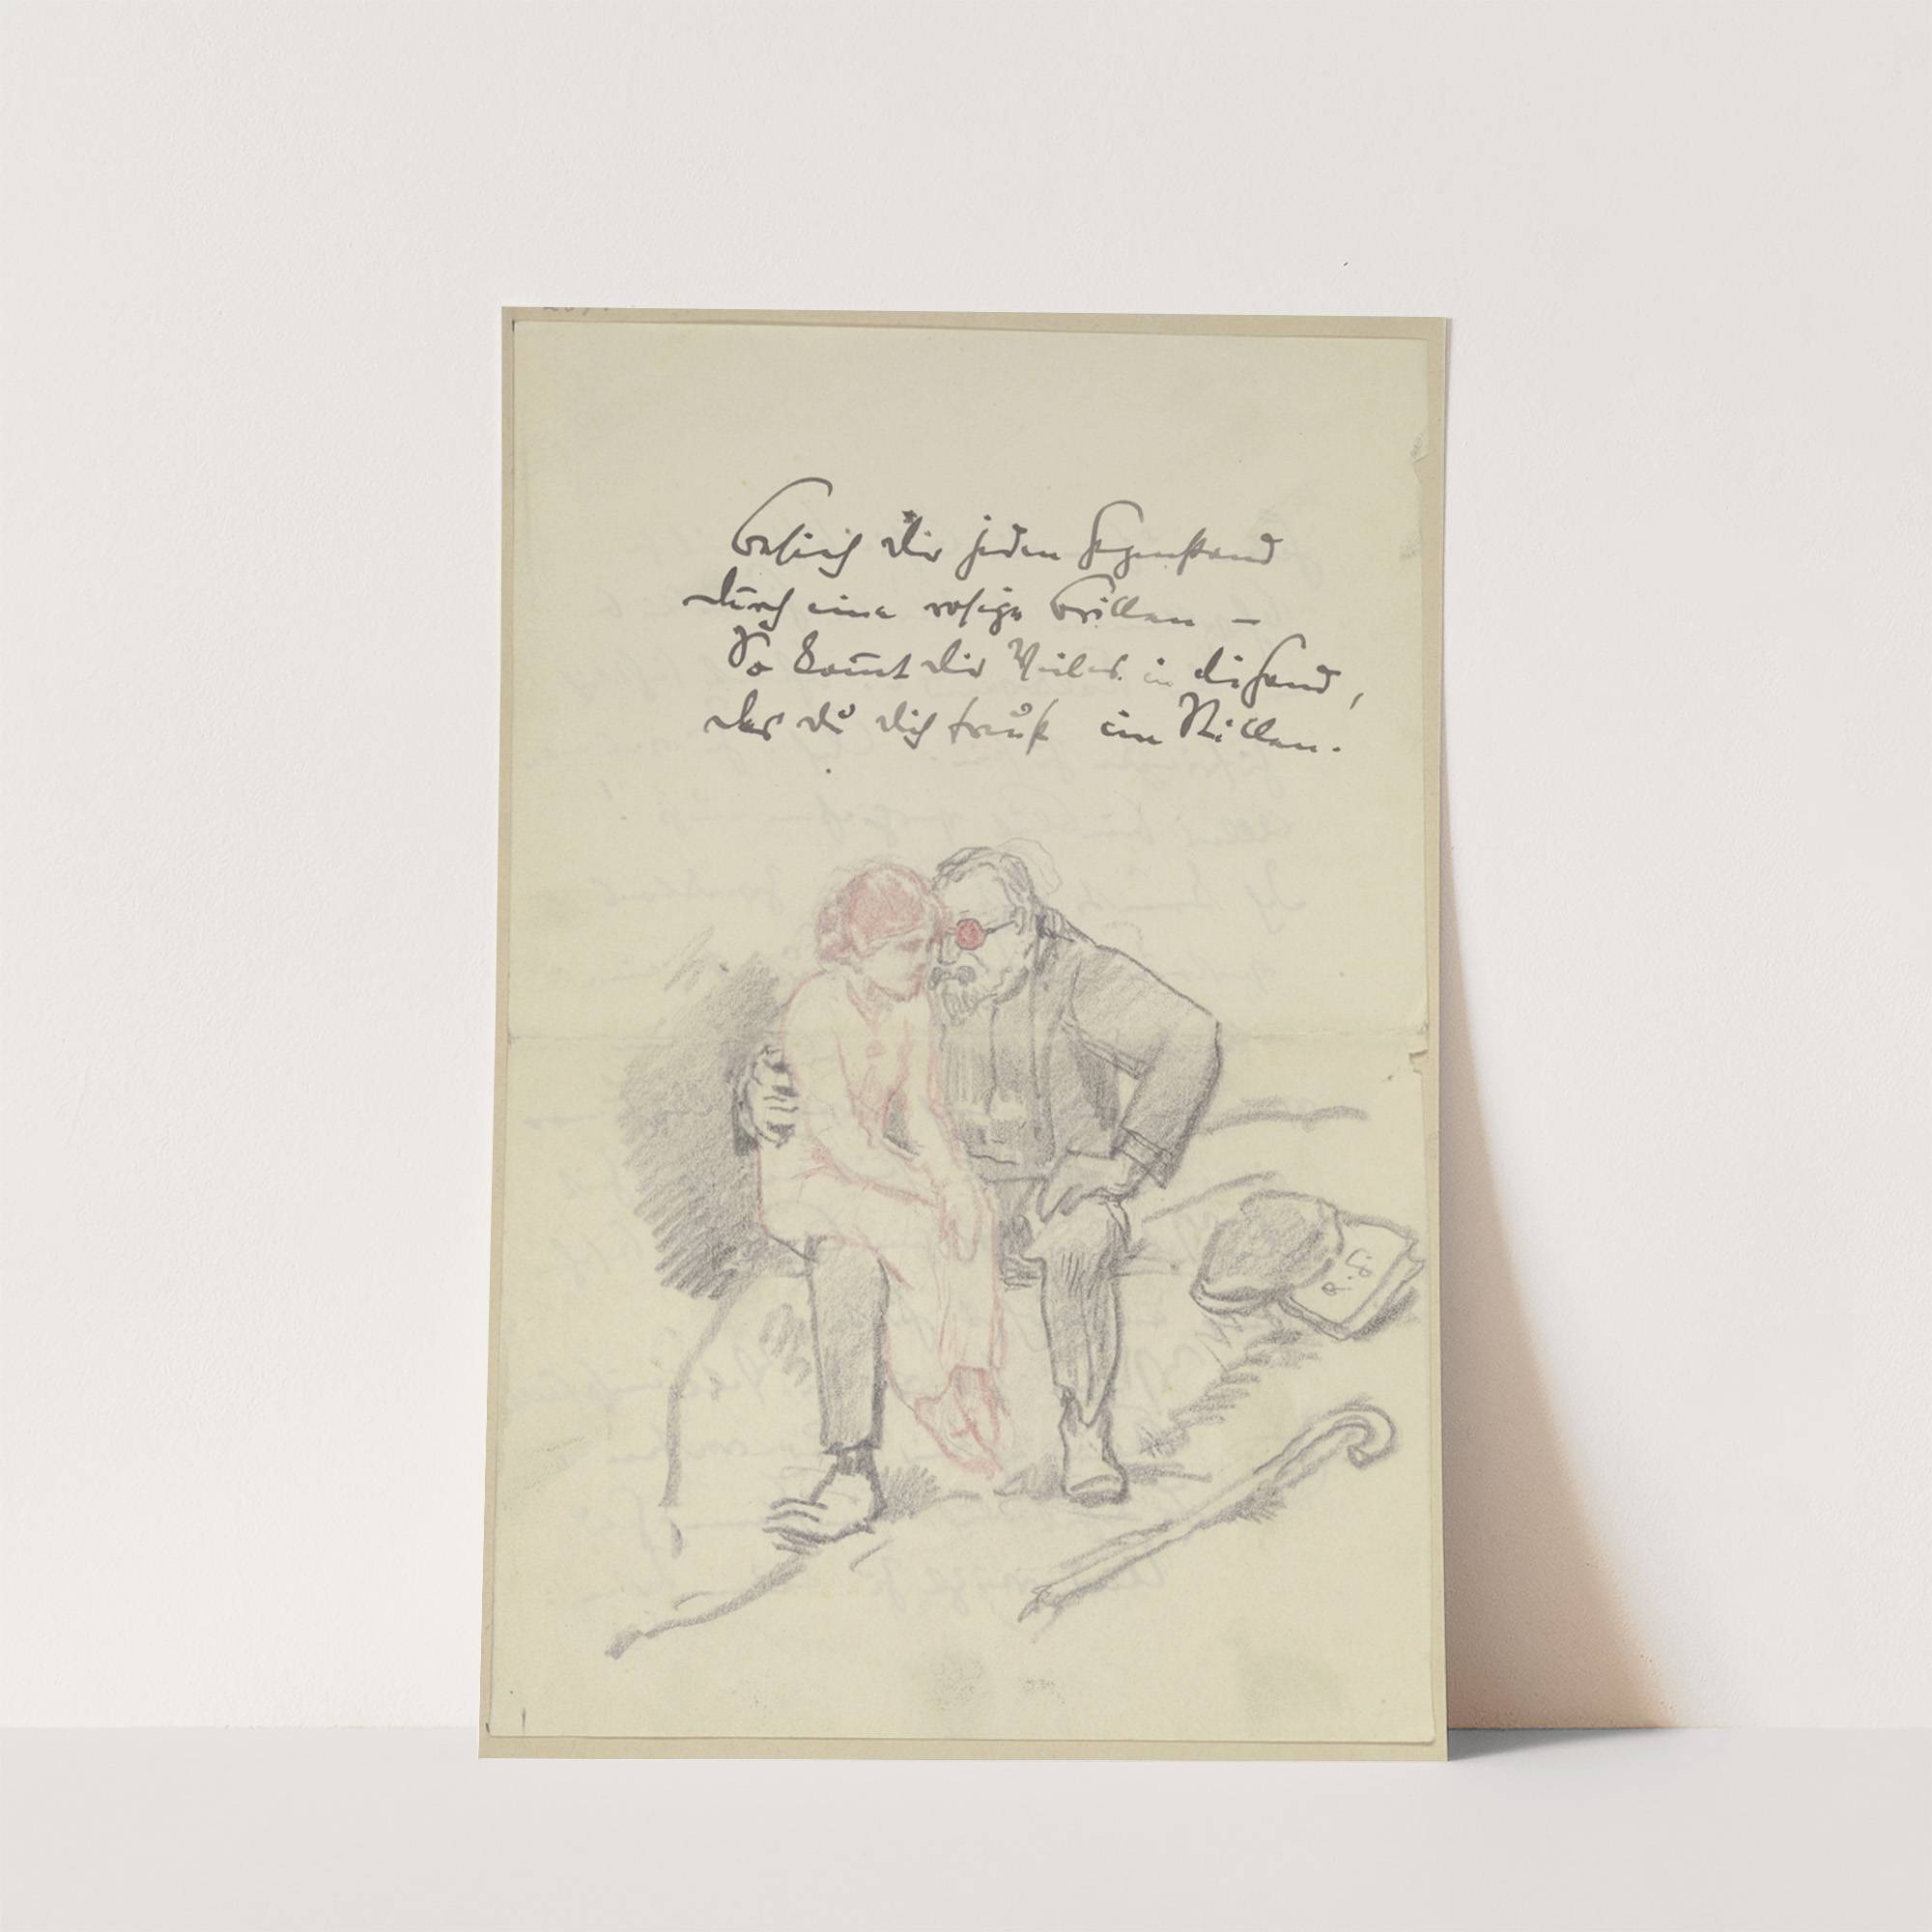 Besieh dir jeden Gegenstand
durch eine rosige Brillen –
So kom̄t dir Vieles in die Hand,
des du dich freust im Stillen.